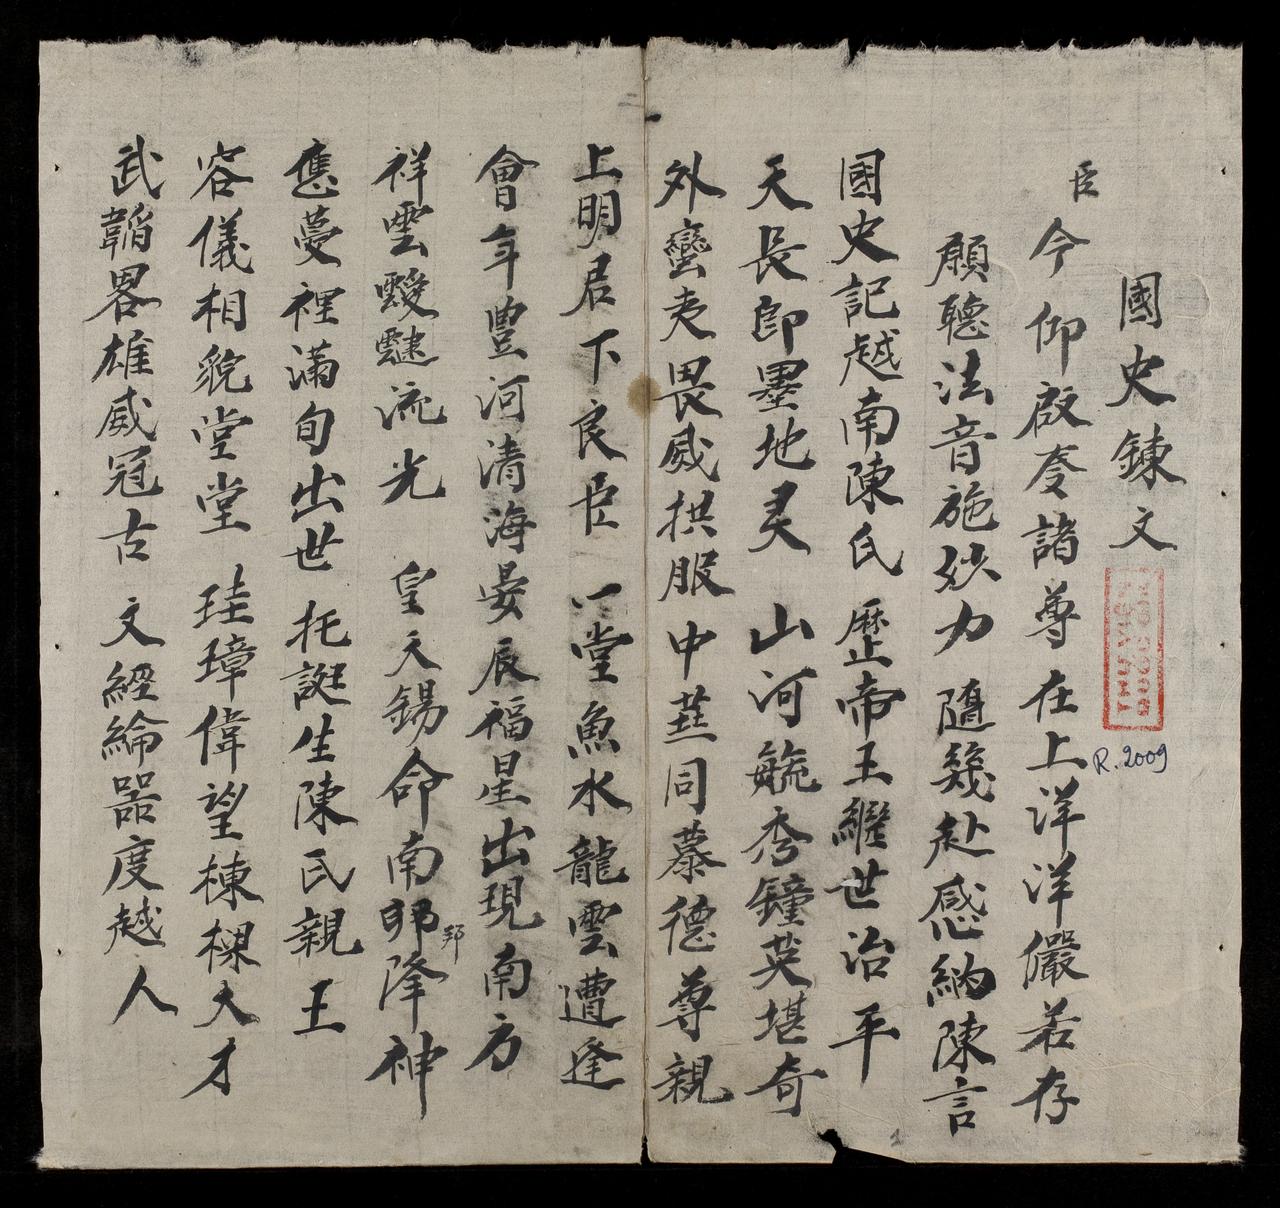 國史鍊文
臣今仰啟奎諸尊在上洋洋儼若存
願聽法音施妙力 隨幾赴感納陳言
國史記越南陳氏 歷帝王繼世治平
天長即墨地灵 山河毓秀鐘英堪奇
外蠻夷畏威拱服 中華同慕德尊親
上明君下良臣 一堂魚水龍雲遭逢
會年豊河清海晏辰福星出現南方
祥雲靉靆流光 皇天錫命南邦降神
邦
應夢裡滿旬出世 托誕生陳氏親王
容儀相貌堂堂 珪璋偉望棟樑大才
武韜畧雄威冠古 文經綸器度越人
THUVIEN
R.2009